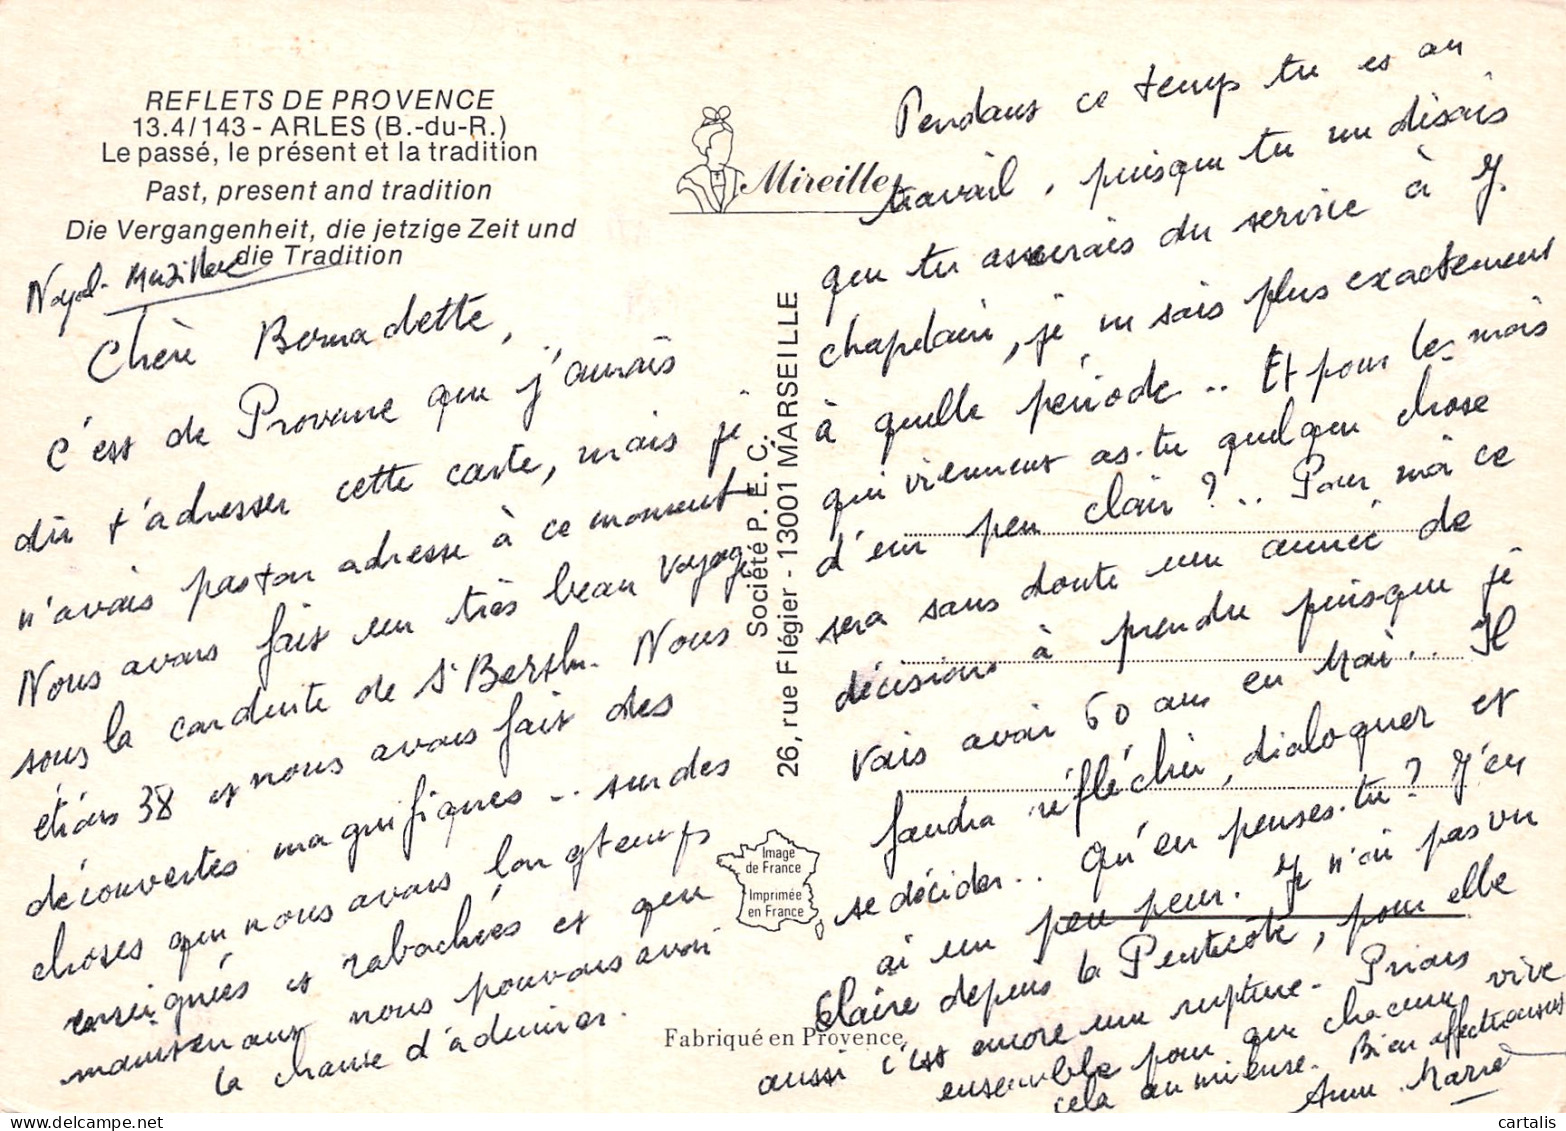 REFLETS DE PROVENCE
13.4/143 - ARLES (B.-du-R.)
Le passé, le présent et la tradition
Past, present and tradition
Die Vergangenheit, die jetzige Zeit und
die Tradition
Noyal-Muzillac
Chère Bernadette,
C'est de Provence que j'aurais
dû t'adresser cette carte, mais je
n'avais pas ton adresse à ce moment
Nous avons fait un très beau voyage
sous la conduite de St Barth. Nous
étions 38 et nous avons fait des
découvertes magnifiques .. sur des
choses que nous avons longtemps
enseignées et rabachées et que
maintenant nous pouvons avoir
la chance d'admirer.
Mireille
Société P.E.C.
26, rue Flégier - 13001 MARSEILLE
Image
de France
Imprimée
en France
Fabriqué en Provence
Pendant ce temps tu es au
travail, puisque tu me disais
que tu assurais du service à J.
chapelain, je ne sais plus exactement
à quelle période .. Et pour les mois
qui viennent as-tu quelque chose
d'un peu clair ? .. Pour moi ce
sera sans doute une année de
décisions à prendre puisque je
vais avoir 60 ans en Mai .. Il
faudra réfléchir, dialoguer et
se décider .. Qu'en penses-tu ? J'en
ai un peu peur. Je n'ai pas vu
Claire depuis la Pentecôte, pour elle
aussi c'est encore une rupture. Prions
ensemble pour que chacune vive
cela au mieux. Bien affectueusement
Anne Marie
cartalis